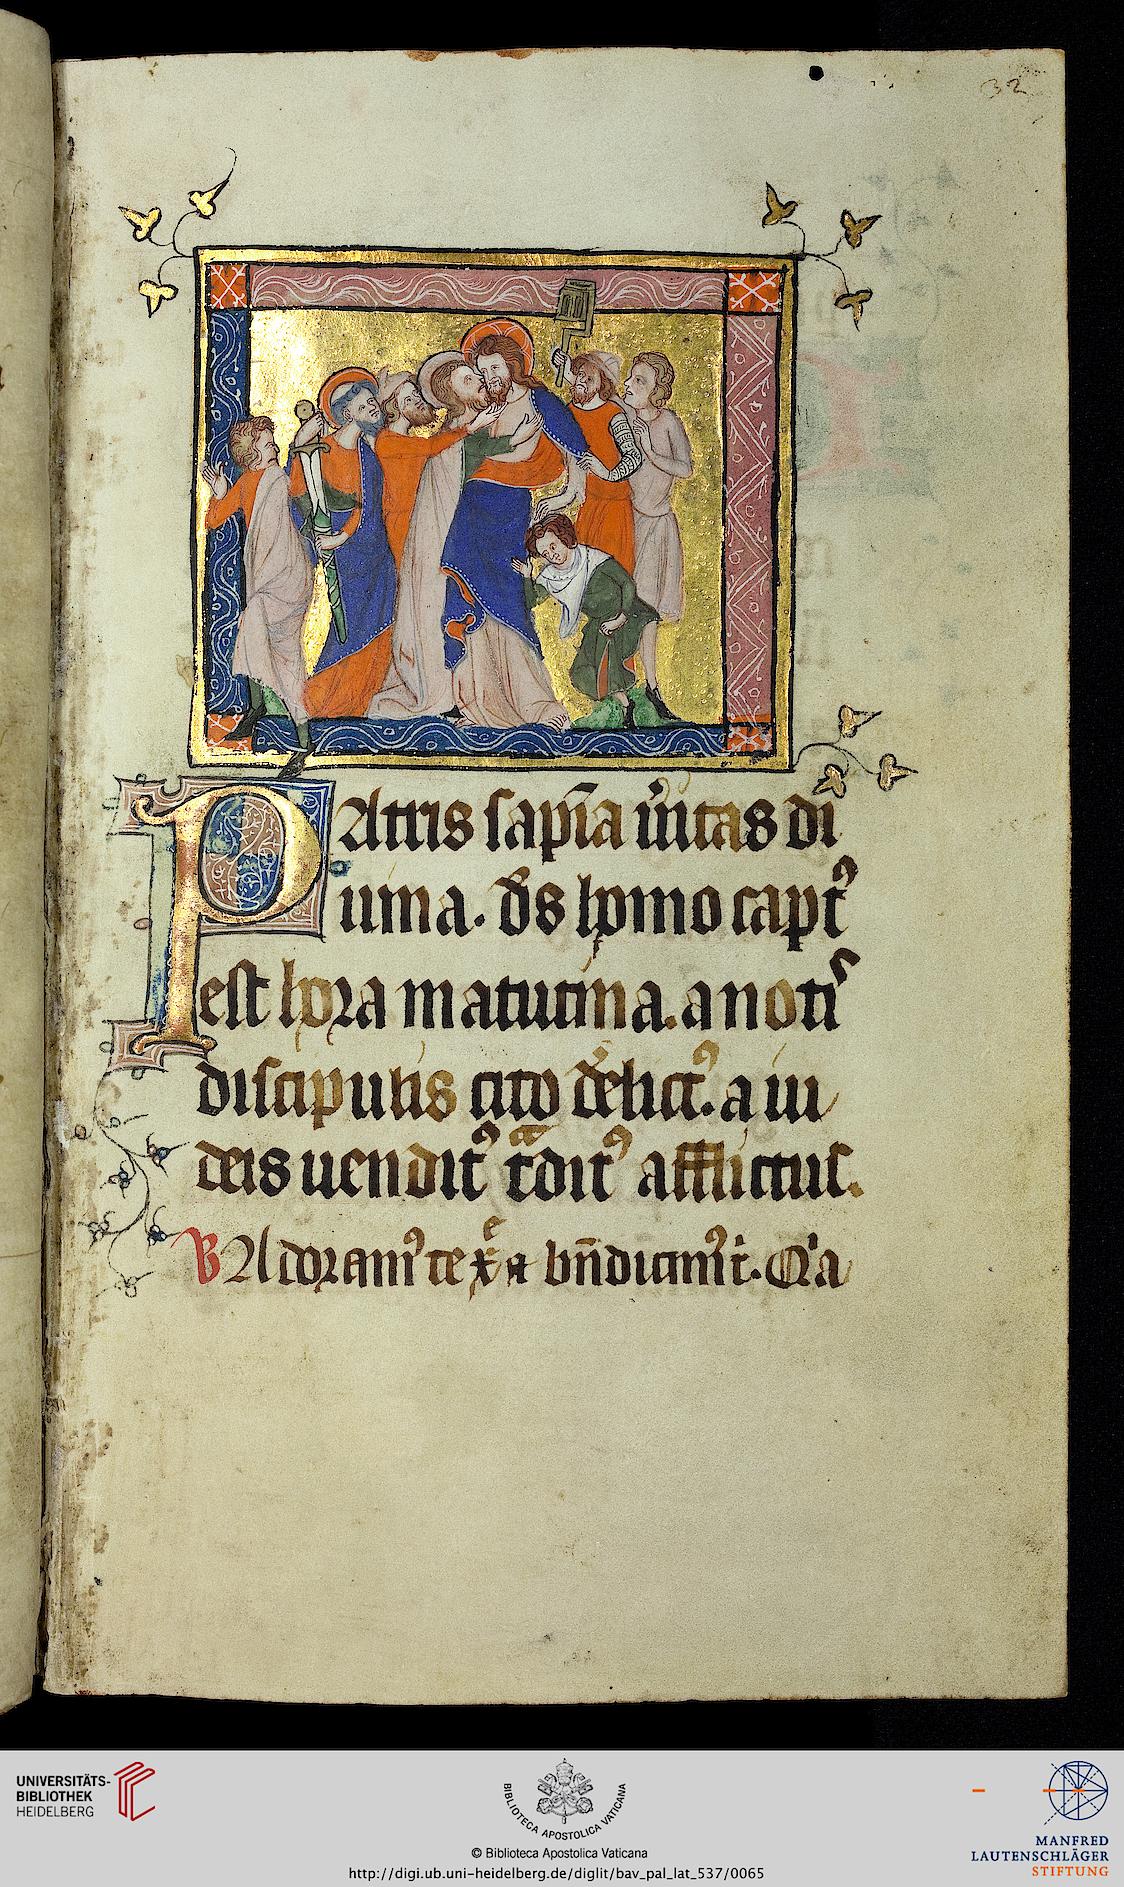 32
Patris sapīa ūitas di
uina. d̄s homo capt᷒
est hora matutina. a noti᷒
discipulis cito d̄elict᷒. a iu
deis uendit᷒ tͣdit᷒ afflictus.
V Adoram᷒ te xp̄e ⁊ bn̄dicim᷒ ṫ. Qͥa
UNIVERSITÄTS-
BIBLIOTHEK
HEIDELBERG
BIBLIOTECA APOSTOLICA VATICANA
© Biblioteca Apostolica Vaticana
http://digi.ub.uni-heidelberg.de/diglit/bav_pal_lat_537/0065
MANFRED
LAUTENSCHLÄGER
STIFTUNG